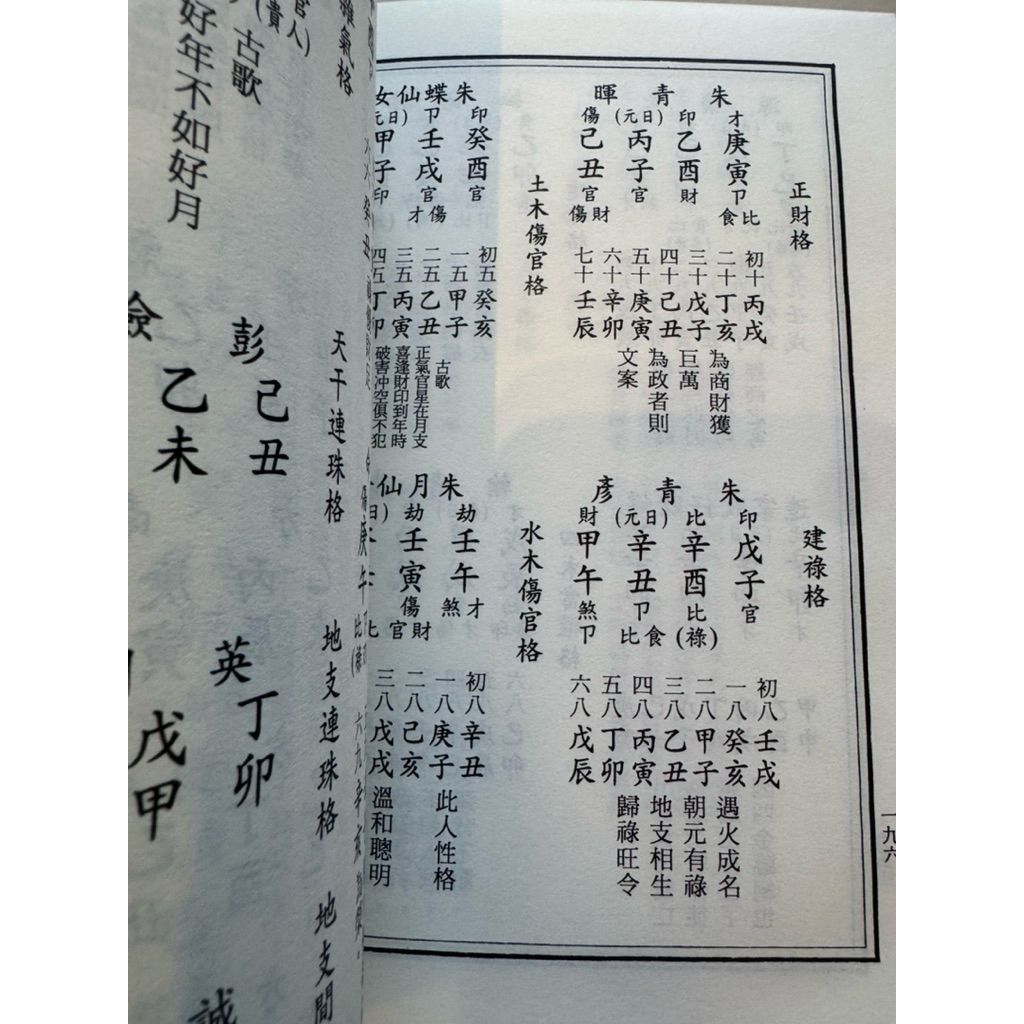 正財格
朱青暉
才庚寅卩食比
印乙酉財
(日元)丙子官
傷己丑官傷財
初十丙戌
二十丁亥
三十戊子
四十己丑
五十庚寅
六十辛卯
七十壬辰
為商財獲
巨萬
為政者則
文案
土木傷官格
朱蝶仙女
印癸酉官
卩壬戌官才傷
(日元)甲子印
初五癸亥
一五甲子
二五乙丑
三五丙寅
四五丁卯
古歌
正氣官星在月支
喜逢財印到年時
破害冲空俱不犯
建祿格
朱青彥
印戊子官
比辛酉比(祿)
(日元)辛丑卩比食
財甲午煞卩
初八壬戌
一八癸亥
二八甲子
三八乙丑
四八丙寅
五八丁卯
六八戊辰
遇火成名
朝元有祿
地支相生
歸祿旺令
水木傷官格
朱月仙
劫壬午煞才
劫壬寅傷官財
初八辛丑
一八庚子
二八己亥
三八戊戌
此人性格
溫和聰明
一九六
雜氣格
官(貴人)
古歌
好年不如好月
天干連珠格
地支連珠格
地支間
彭己丑
乙未
英丁卯
戊甲
誠